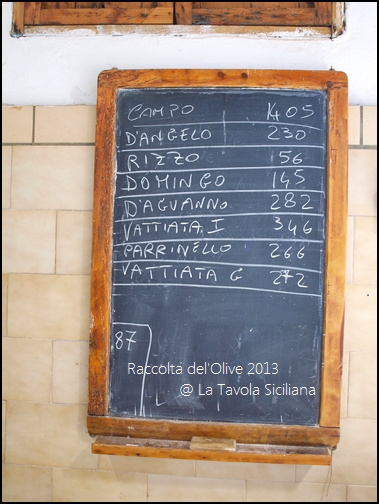 CAMPO 1405
D'ANGELO 230
RIZZO 56
DOMINGO 145
D'AGUANNO 282
VATTIATA I 346
PARRINELLO 266
VATTIATA G 272
87
Raccolta del'Olive 2013
@ La Tavola Siciliana